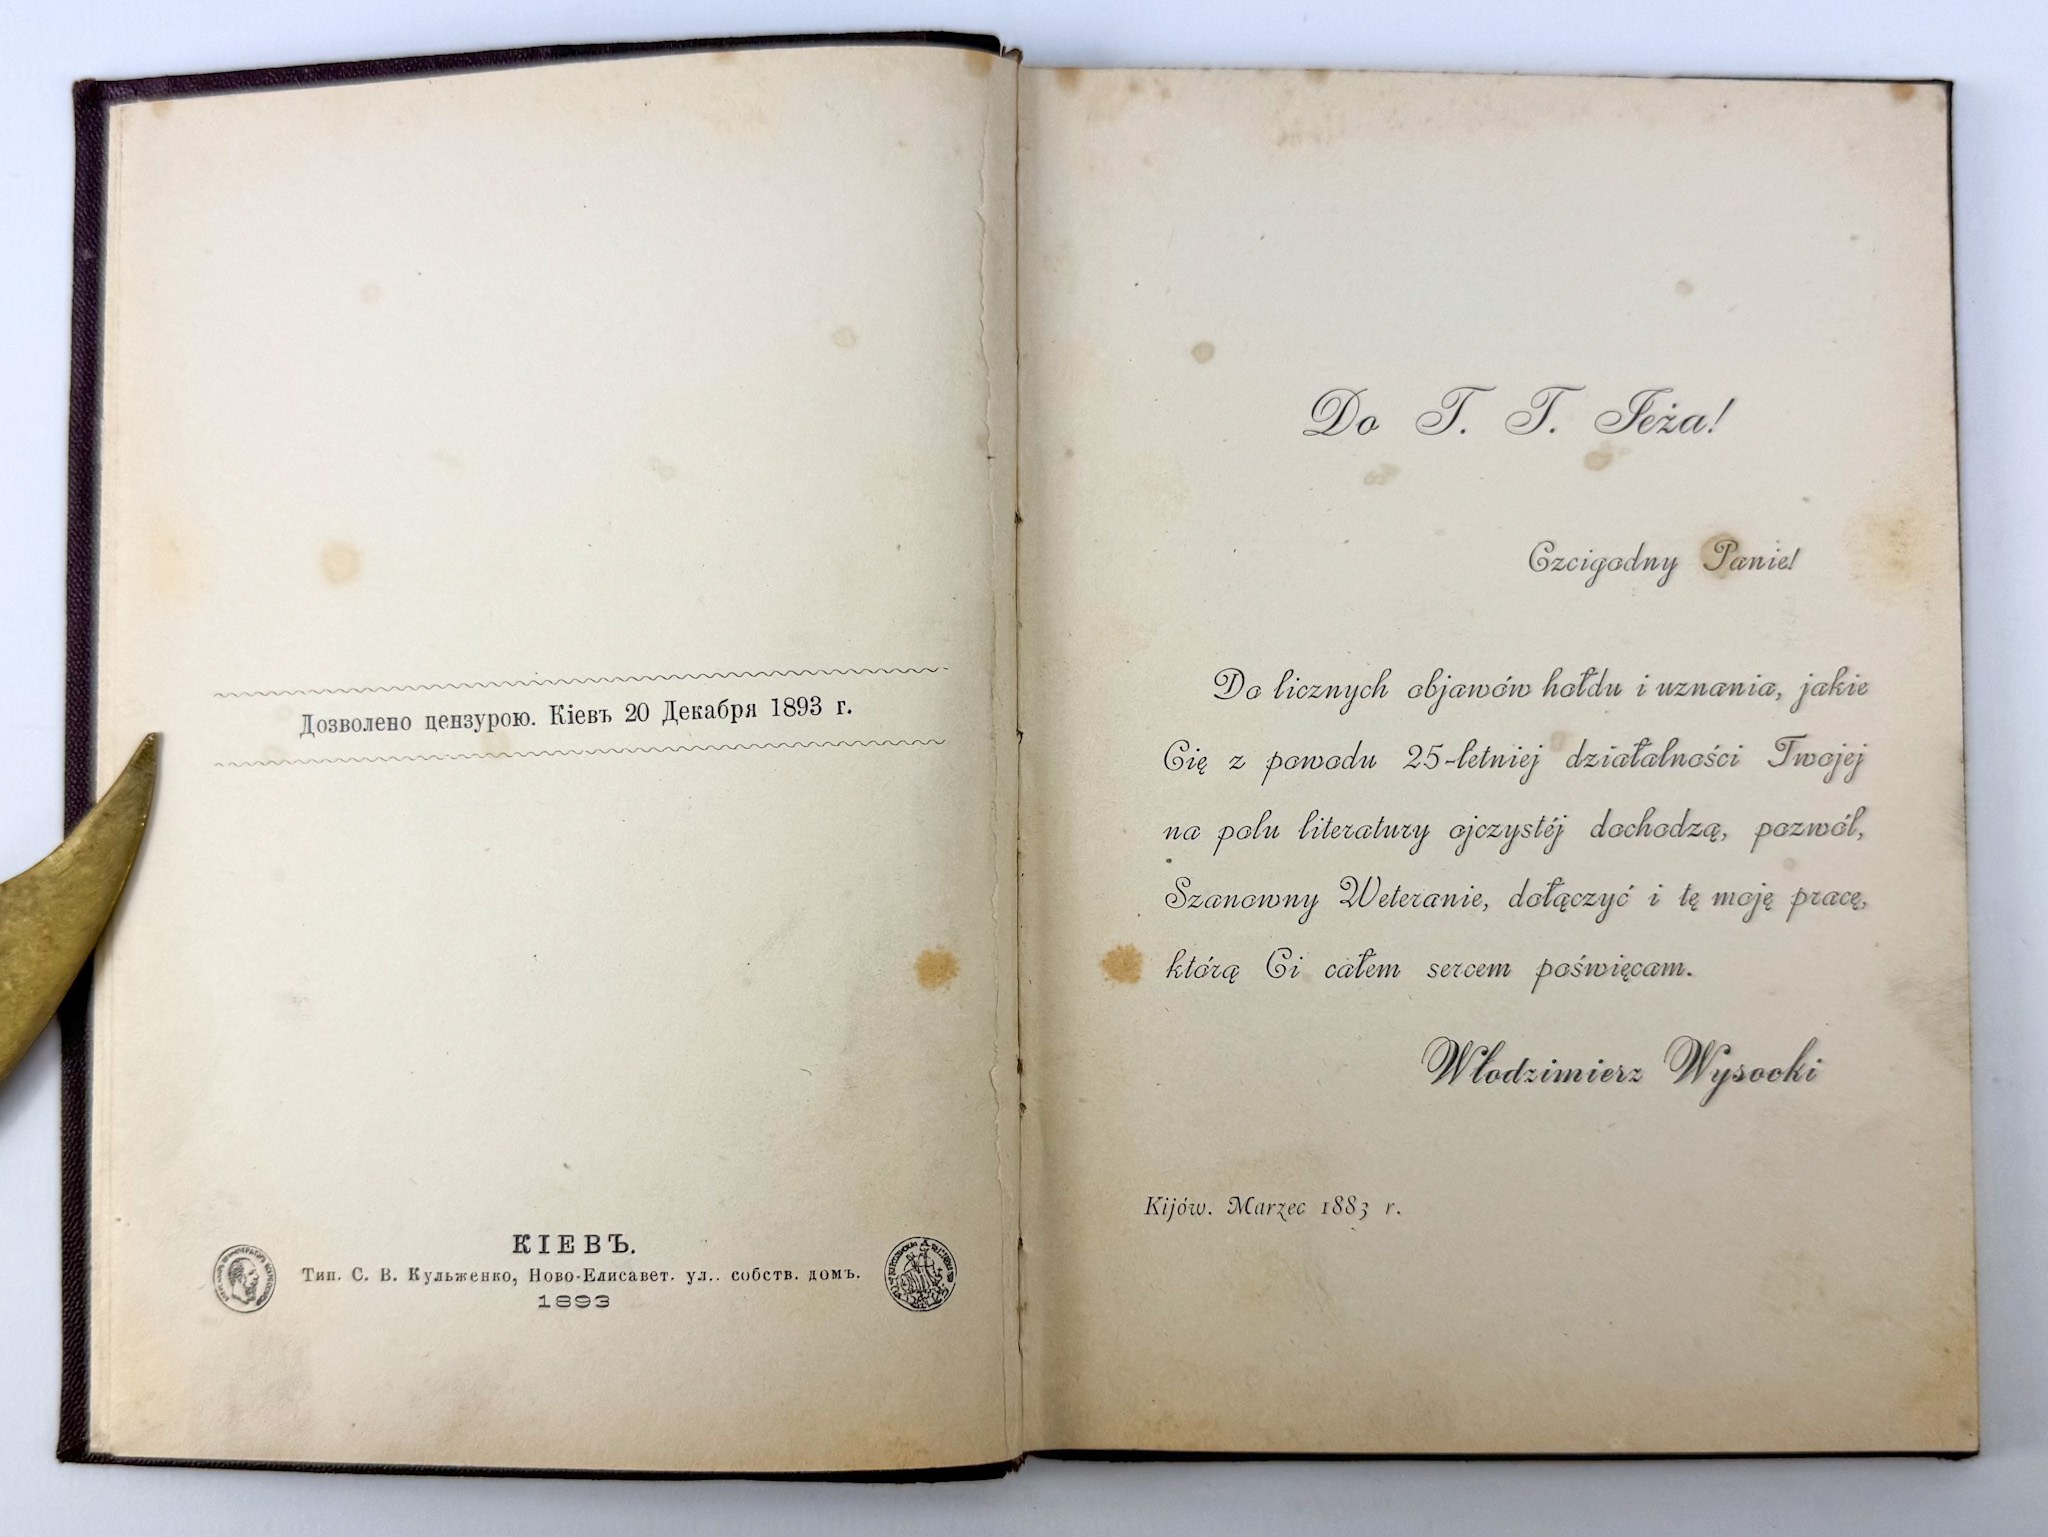 Дозволено цензурою. Кіевъ 20 Декабря 1893 г.
КІЕВЪ.
Тип. С. В. Кульженко, Ново-Елисавет. ул.. собств. домъ.
1893
Do T. T. Jeża!
Czcigodny Panie!
Do licznych objawów hołdu i uznania, jakie
Cię z powodu 25-letniej działalności Twojej
na polu literatury ojczystéj dochodzą, pozwól,
Szanowny Weteranie, dołączyć i tę moję pracę,
którą Ci całem sercem poświęcam.
Włodzimierz Wysocki
Kijów. Marzec 1883 r.